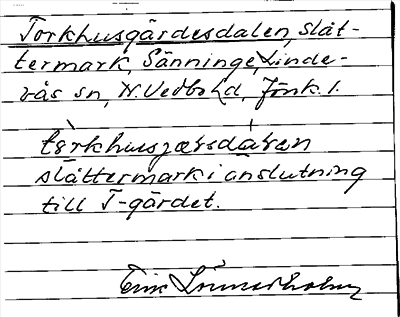 Torkhusgärdesdalen, slåt-
termark, Sänninge, Linde-
rås sn, N. Vedbo hd, Jönk. l.
tɵrkhusjæʀsdàʀen
slåttermark i anslutning
till T-gärdet.
Erik Lönnerholm